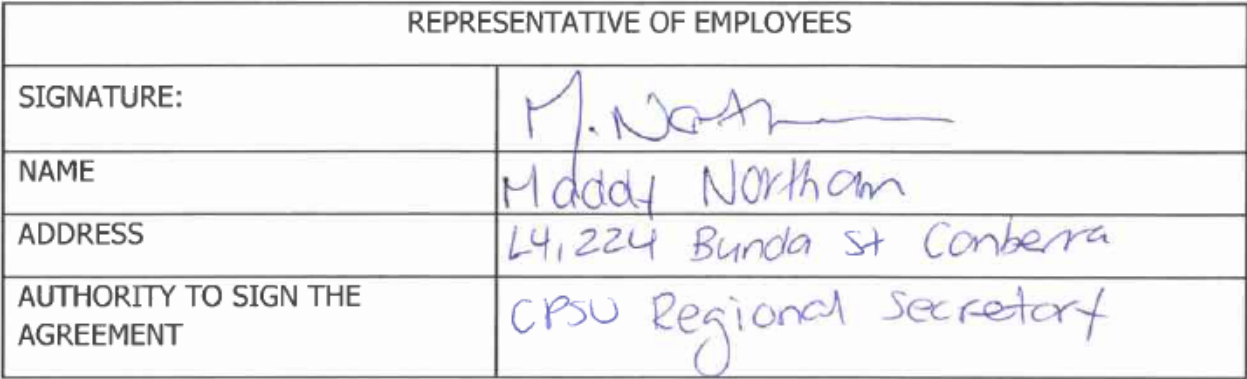 REPRESENTATIVE OF EMPLOYEES
SIGNATURE: M. North
NAME Maddy Northam
ADDRESS L4, 224 Bunda St Canberra
AUTHORITY TO SIGN THE
AGREEMENT CPSU Regional Secretary